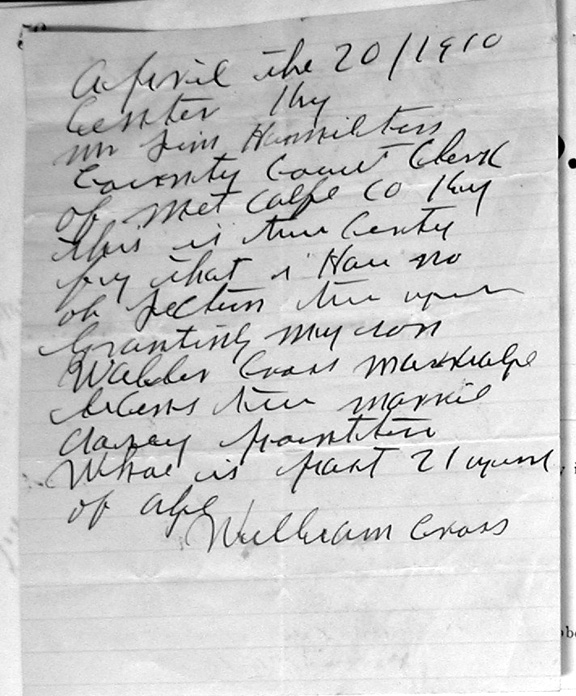 April the 20/1910
Center Ky
mr Jim Hamilton
County Court Clerk
of Metcalfe Co Ky
this is tow Certy
fy that i Have no
ob Jection tow upon
Granting my son
Walder Cross marraige
licens tow marrie
daisey
Whoe is past 21 years
of age
William Cross